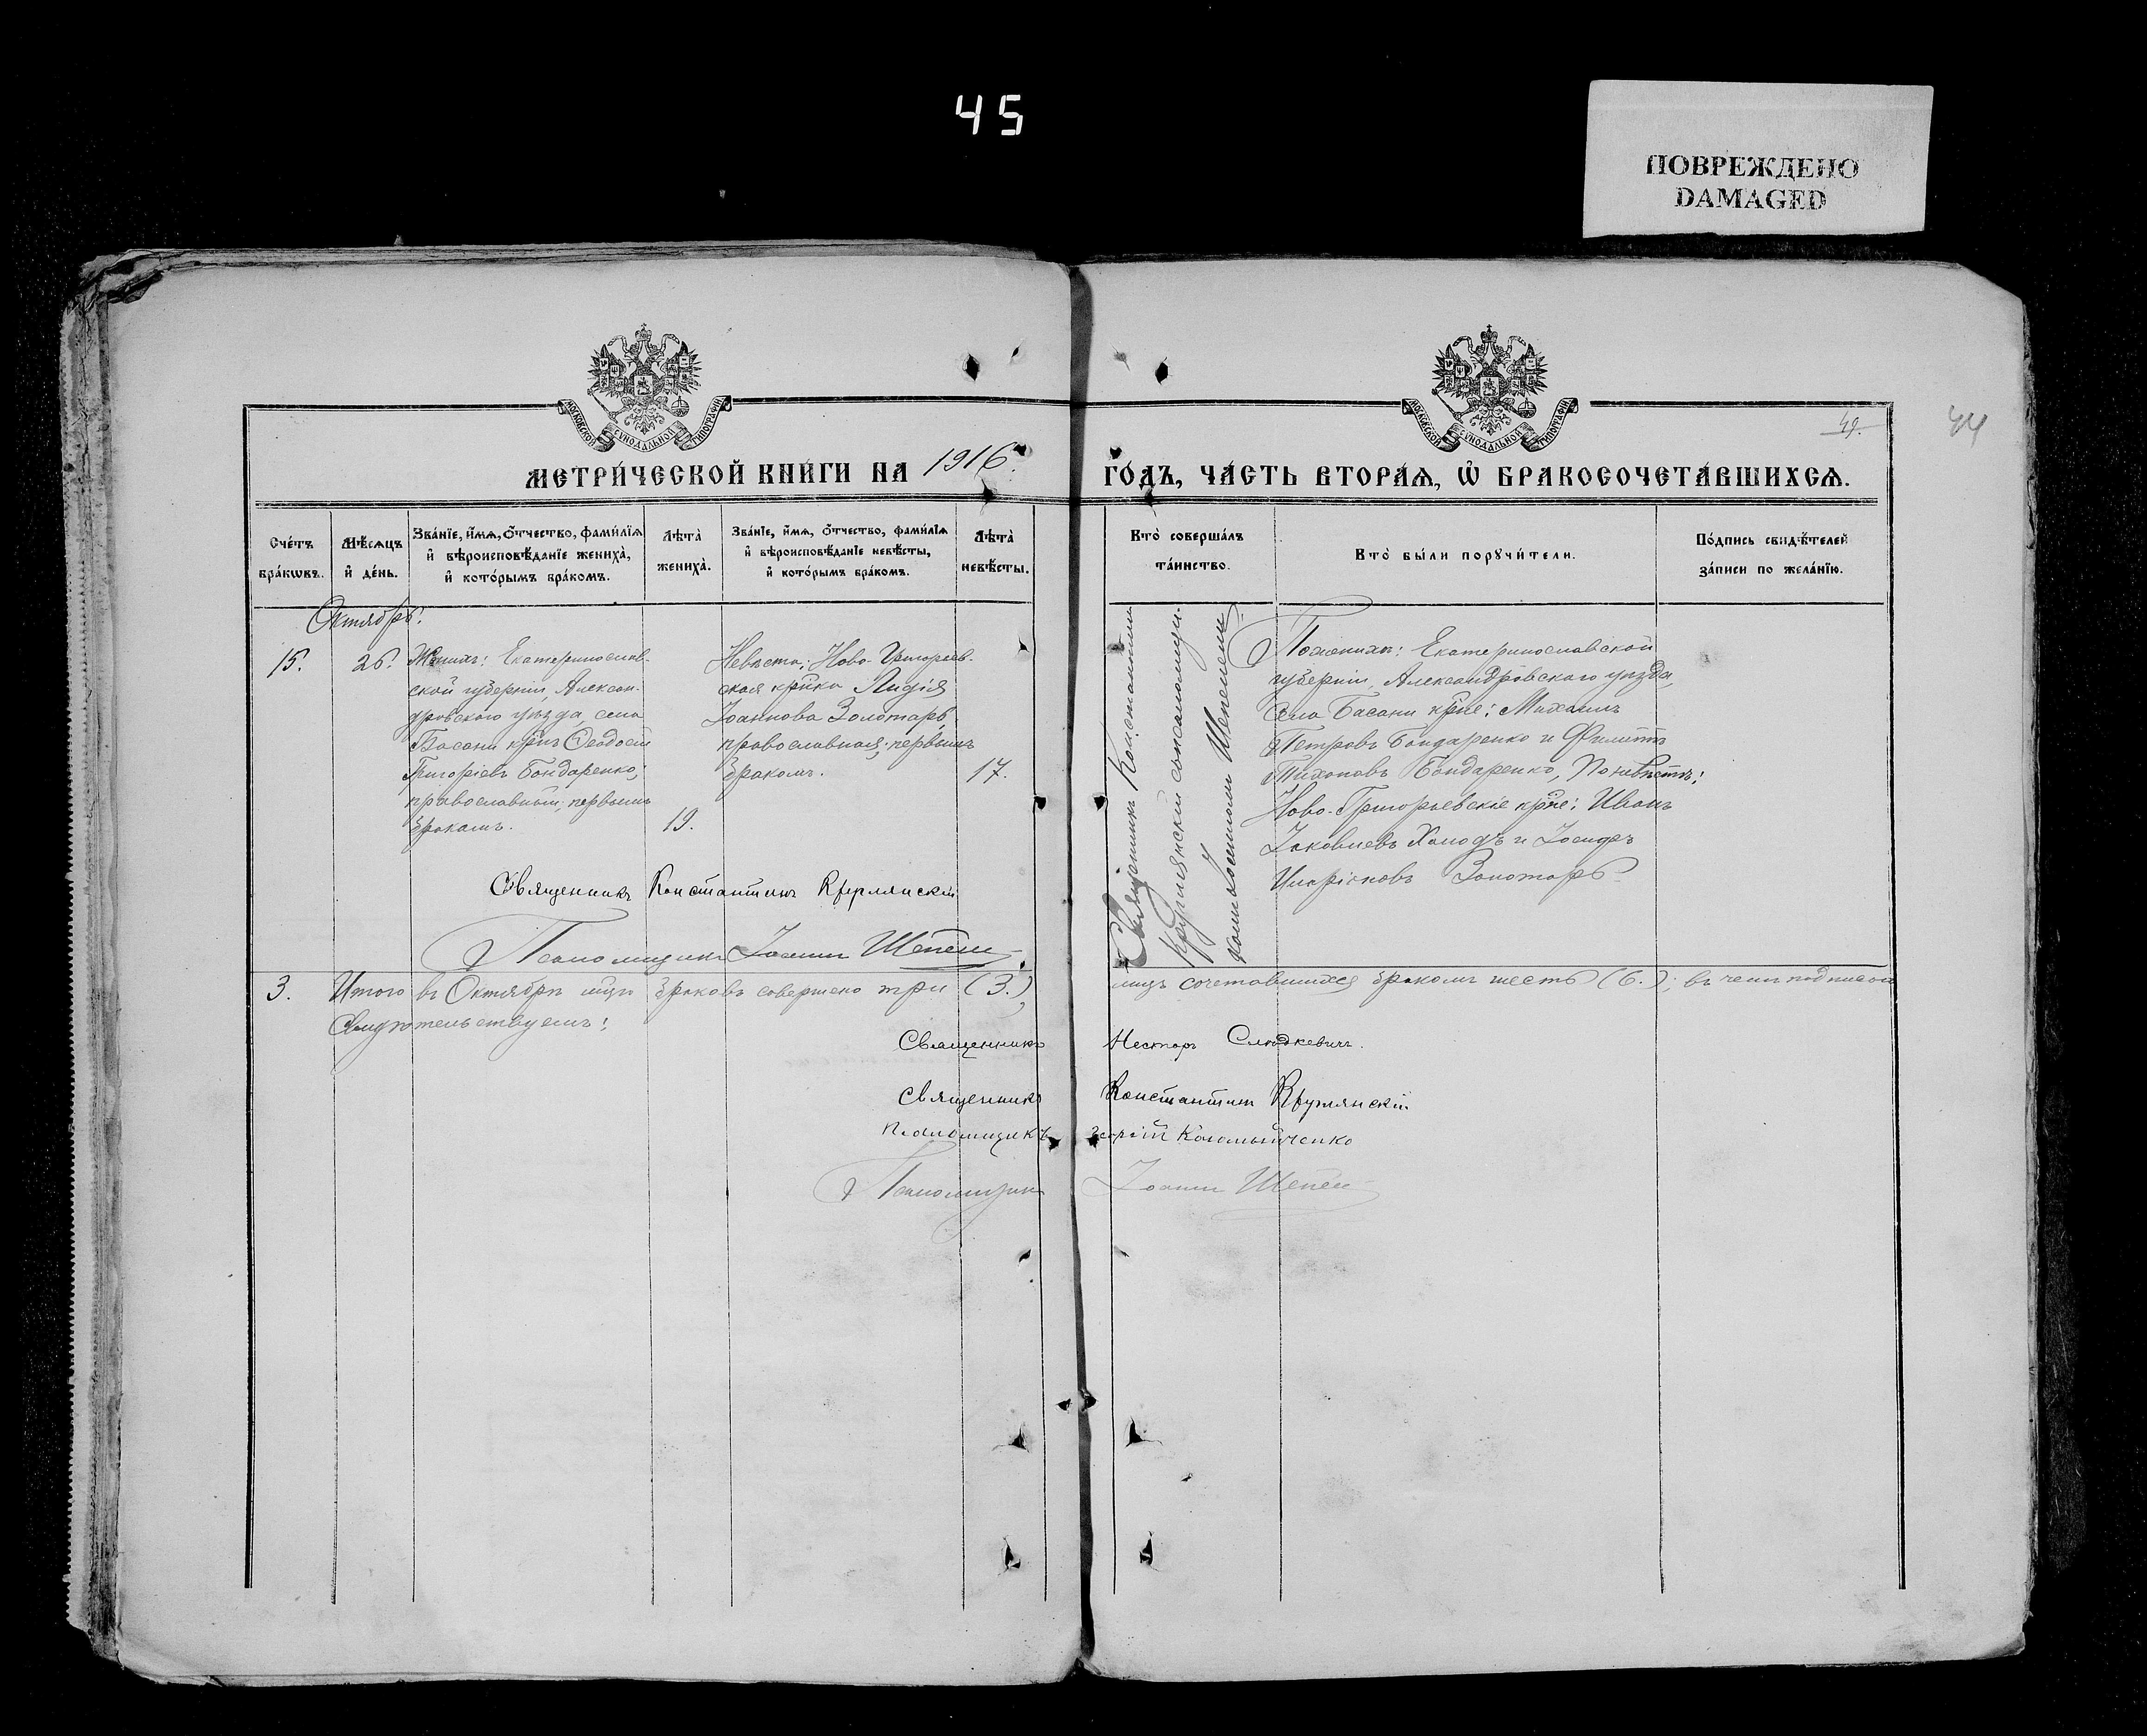 45
ПОВРЕЖДЕНО
DAMAGED
МОСКОВСКОЙ СѴНОДАЛЬНОЙ ТИПОГРАФІИ
МОСКОВСКОЙ СѴНОДАЛЬНОЙ ТИПОГРАФІИ
49.
44
МЕТРИ́ЧЕСКОЙ КНИ́ГИ НА 1916.
ГО́ДЪ, ЧА́СТЬ ВТОРА́Ѧ, Ѡ҆ БРАКОСОЧЕТА́ВШИХСѦ.
Сче́тъ
бра́кѡвъ.
Мѣ́сѧцъ
и҆ де́нь.
Зва́нїе, и҆́мѧ, ѻ҆́тчество, фами́лїѧ
и҆ вѣроисповѣ́данїе жениха̀,
и҆ кото́рымъ бра́комъ.
Лѣ́та̀
жениха̀.
Зва́нїе, и҆́мѧ, ѻ҆́тчество, фами́лїѧ
и҆ вѣроисповѣ́данїе невѣ́сты,
и҆ кото́рымъ бра́комъ.
Лѣ́та̀
невѣ́сты.
Кто̀ соверша́лъ
та́инство.
Кто̀ бы́ли порꙋчи́тели.
По́дпись свидѣ́телей
за́писи по жела́нїю.
Октябрь.
15.
26.
Женихъ: Екатеринослав-
ской губерніи, Алексан-
дровскаго уѣзда, села
Басани кр͞нъ Ѳеодосій
Григоріевъ Бондаренко;
православный; первымъ
бракомъ.
19.
Невѣста: Ново-Григорьев-
ская кр͞нка Лидія
Іоаннова Золотарь,
православная; первымъ
бракомъ.
17.
Священникъ Константинъ
Крумлянскій съ псаломщи-
комъ Іоанномъ Шепелемъ.
Поженихѣ: Екатеринославской
губерніи, Александровскаго уѣзда,
села Басани кр͞не: Михаилъ
Петровъ Бондаренко и Филиппъ
Тихоновъ Бондаренко, Поневѣстѣ:
Ново-Григорьевскіе кр͞не: Иванъ
Іаковлевъ Холодъ и Іосифъ
Золотарь.
Священникъ Константинъ Крумлянскій
Псаломщикъ Іоаннъ Шепель
3. Итого въ Октябрѣ мцѣ браковъ совершено три (3.),
лицъ сочетавшихся бракомъ шесть (6.); въ чемъ подписью
свидѣтельствуемъ:
Священникъ Несторъ
Священникъ Константинъ Крумлянскій
Псаломщикъ Георгій Коломыйченко
Псаломщикъ Іоаннъ Шепель